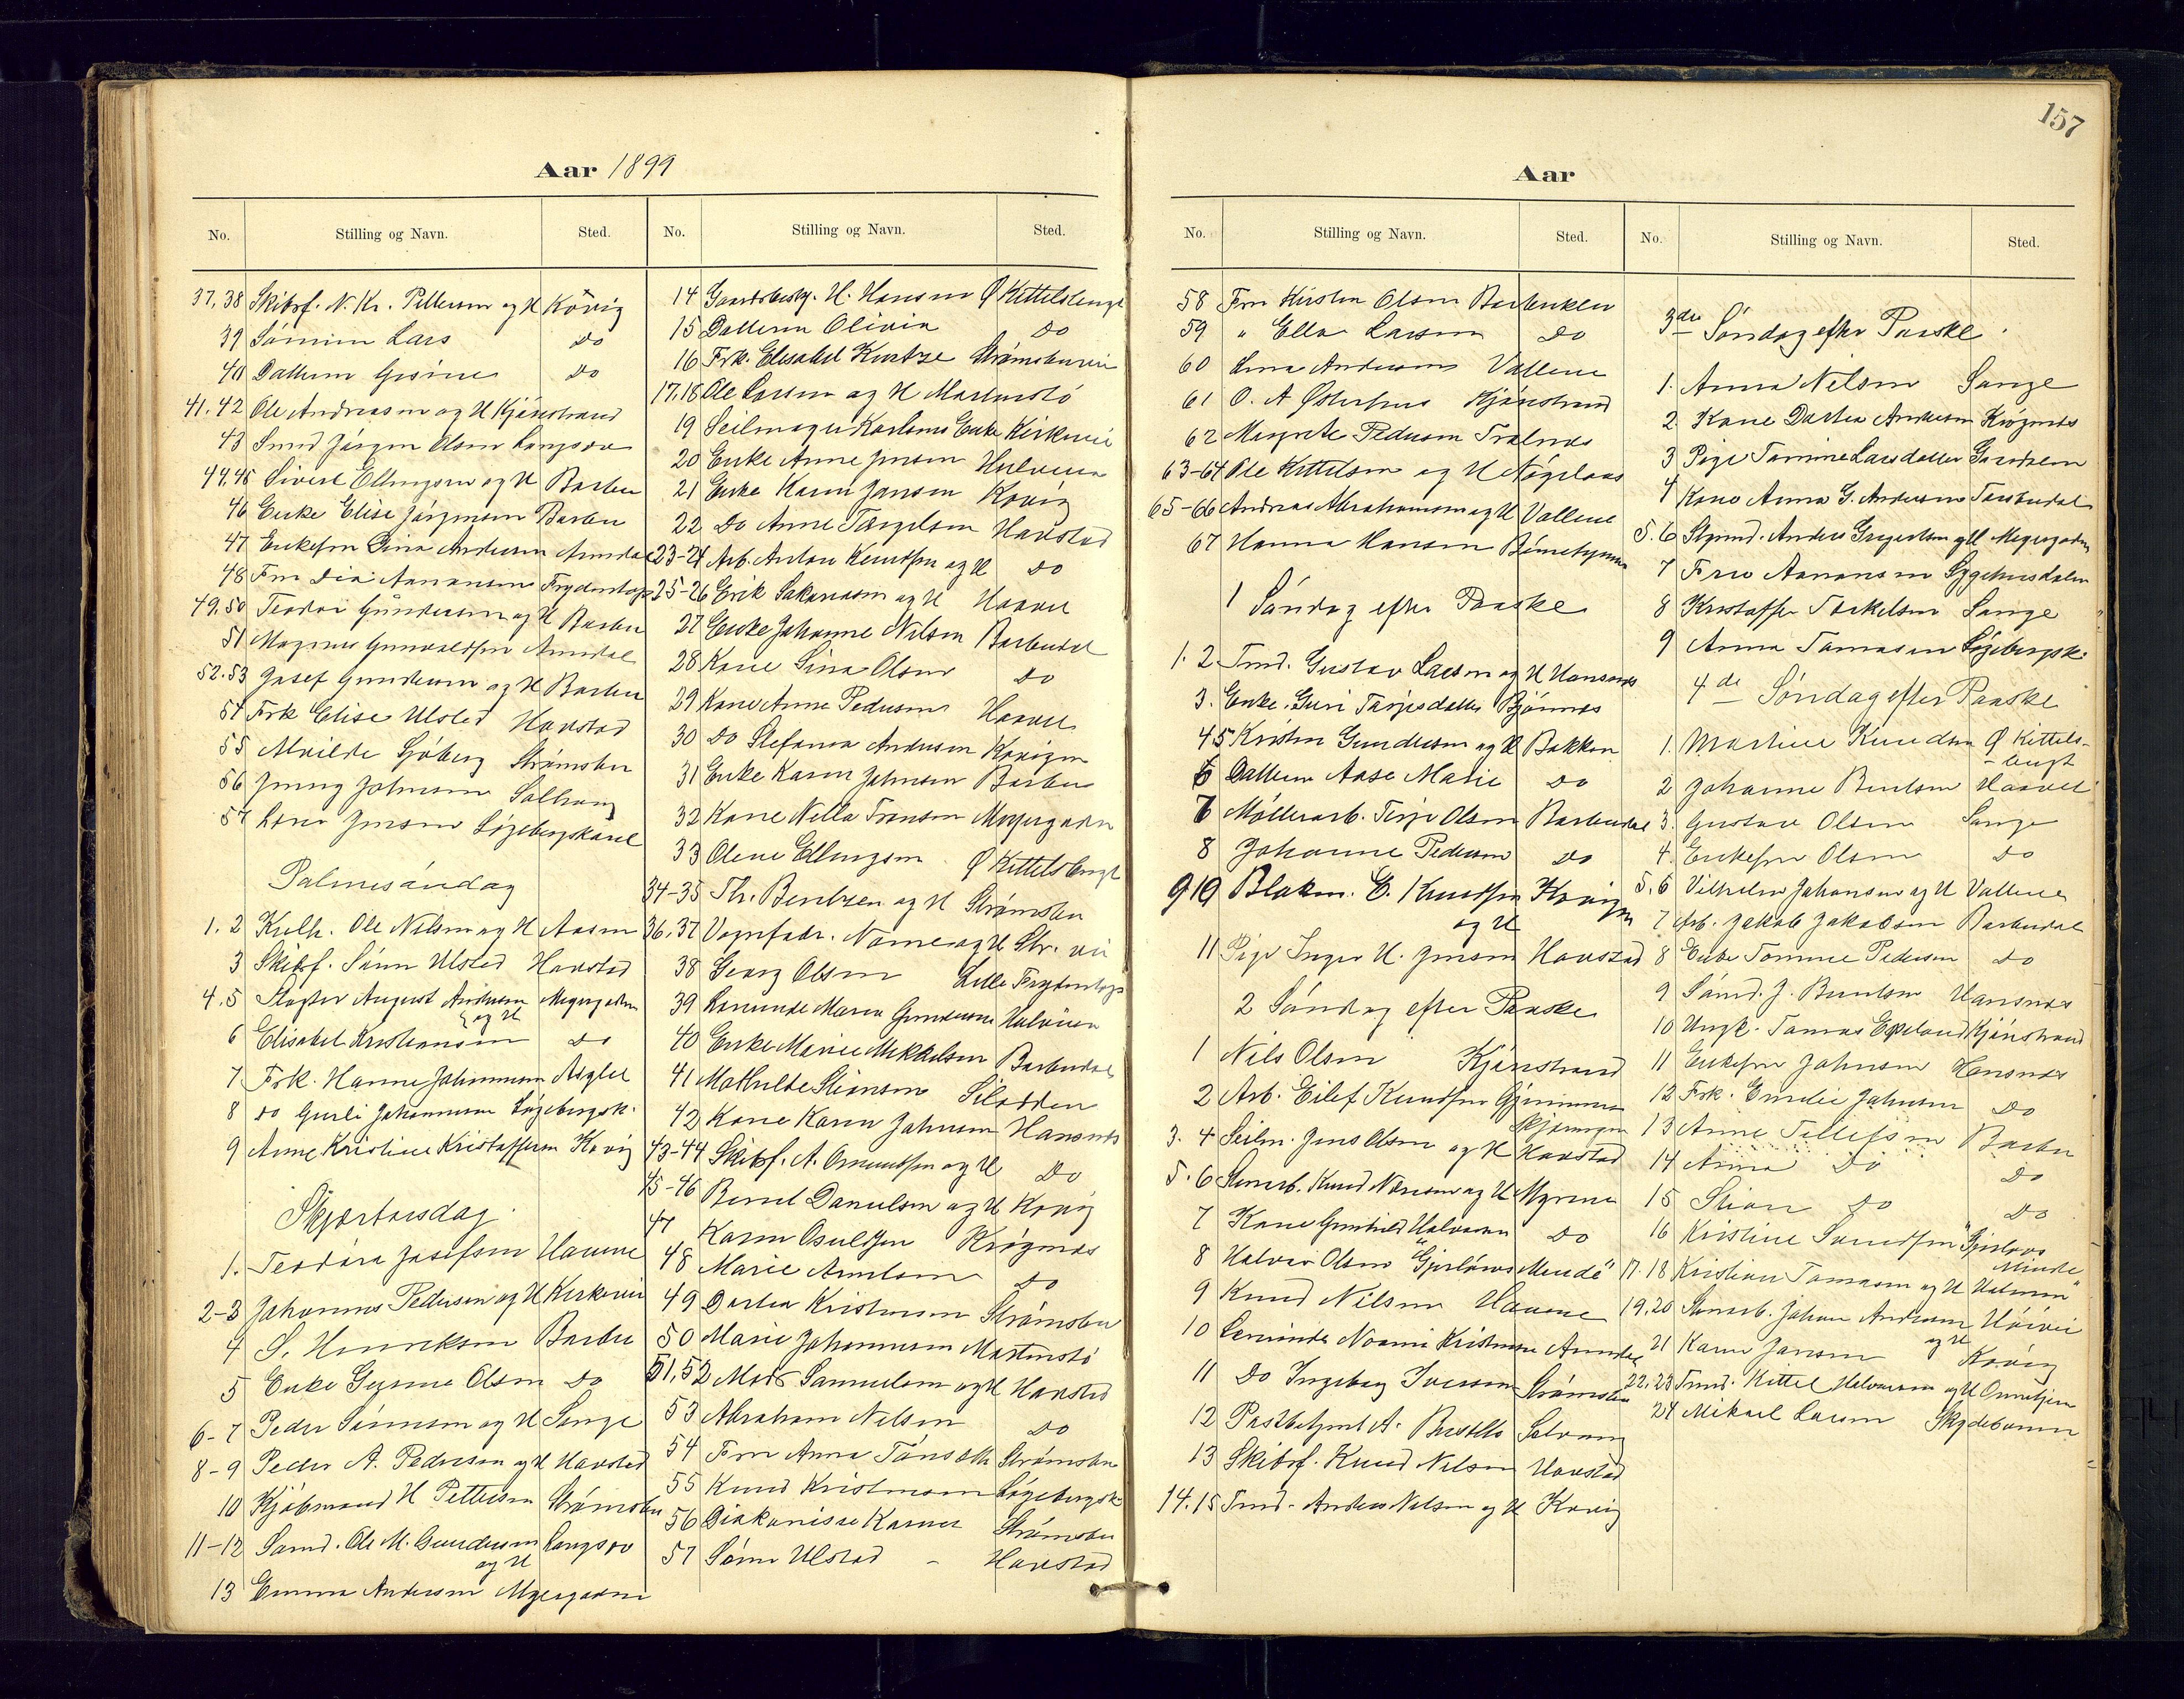 157
Aar 1899
No. Stilling og Navn. Sted.
37,38 Skibsf. N. Kr. Pettersen og H Kovig
39 Sønnen Lars Do
40 Datteren Do
41.42 Ole Andreassen og H Kjønstrand
43 Smed Jørgen Olsen Langsæv
44,45 Sivert Ellingsen og H Barbu
46 Enke Elise Jørgensen Barbu
47 Enkefru Gina Andersen Arendal
48 Fru Aanonsen
49.50 Teodor Gundersen og H Barbu
51 Magnus Gunvaldsen Arendal
52.53 Josef Gundersen og H Barbu
54 Frk Elise Ulsted Havstad
55 Alvilde Sjøberg Strømsbu
56 Jenny Johnsen Solhaug
57 Jensen Løgebergskavel
Palmesøndag
1. 2 Ole Nilsen og H Aasen
3 Skibsf. Sønn Ulsted Havstad
4.5 Slagter August Andersen og H Myrgaden
6 Elisabet Kristiansen Do
7 Frk. Hanne Johannesen
8 do Gurli Johannesen Løgebergsk.
9 Anne Kristine Kristoffersen Kovig
Skjærtorsdag.
1. Teodora Josefsen Havene
2-3 Johannes Pedersen og H Kirkevei
4 S. Henriksen Barbu
5 Enke Gysine Olsen Do
6-7 Peder Sørensen og H Songe
8-9 Peder A. Pedersen og H Havstad
10 Kjøbmand H Pettersen Strømsbu
11-12 Sømd. Ole M. Gundersen og H Langsæv
13 Emma Andersen Myrgaden
No. Stilling og Navn. Sted.
14 Gaardsbesty. H. Hansen Ø Kittelsbugt
15 Datteren Olivia Do
16 Frk. Elisabet Kortze
17,18 Ole Larsen og H
19 Seilmager Karlsens Enke Kirkevei
20 Enke Anne Jensen
21 Enke Karen Jansen Kovig
22 Do Anne Tørgelsen Havstad
23-24 Arb. Anton Knudsen og H Do
25-26 Erik Sakariasen og H Haavet
27 Enke Johanne Nilsen Barbudal
28 Kone Sina Olsen Do
29 Kone Anne Pedersen Haavet
30 Do Stefania Andersen Kovigen
31 Enke Karen Johnsen Barbu
32 Kone Nella Tronsen Myrgaden
33 Olene Ellingsen Ø Kittelsbugt
34-35 Th. Bentzen og H Strømsbu
36,37 Vognfabr. og H Str. vei
38 Georg Olsen Lille
39 Maren Gundersen
40 Enke Marie Mikkelsen Barbudal
41 Mathilde Stiansen Silodden
42 Kone Karen Johnsen Hansnes
43-44 Skibsf. A. Omundsen og H Do
45-46 Berent Danielsen og H Kovig
47 Karen Osuldsen Krøgenes
48 Marie Arntsen Do
49 Dortea Kristensen Strømsbu
50 Marie Johannesen
51,52 Mads Samuelsen og H Havstad
53 Abraham Nilsen Do
54 Fru Anna Strømsbu
55 Knud Kristensen Løgebergsk
56 Diakonisse Karen Strømsbu
57 Sønn Ulstad - Havstad
Aar
No. Stilling og Navn. Sted.
58 Fru Kirsten Olsen
59 " Ella Larsen Do
60 Andersen Vallene
61 O. A Østerhus Kjønstrand
62 Margrete Pedersen
63-64 Ole Kittelsen og H
65-66 Andreas Abrahamsen og H Vallene
67 Hanna Hansen
1 Søndag efter Paaske
1. 2 Tmd. Gustav Larsen og H Hansnes
3. Enke Guri Tarjesdatter Bjønnes
4 5 Kristen Gundersen og H Bakken
6 Datteren Aase Marie Do
7 Møllerarb. Terje Olsen Barbudal
8 Johanne Pedersen Do
9 10 Blokm. E. Knudsen og H Kovigen
11 Pige Inger H. Jensen Havstad
2 Søndag efter Paaske
1 Nils Olsen Kjønstrand
2 Arb. Eilef Knudsen
3. 4 Seilm. Jens Olsen og H Havstad
5.6 Knud og H Myrene
7 Kone Gunhild Halvorsen Do
8 Halvor Olsen "Gjerløws Minde"
9 Knud Nilsen Havene
10 Lærerinde Noomi Kristensen Arendal
11 Do Ingeborg Iversen Strømsbu
12 Postbetjent A. Solvang
13 Skibsf. Knud Nilsen Havstad
14.15 Tmd. Anders Nilsen og H Kovig
No. Stilling og Navn. Sted.
3die Søndag efter Paaske.
1. Anna Nilsen Songe
2. Kone Dortea Andersen Krøgenes
3 Pige Tomine Larsdatter
4 Kone Anna G. Andersen
5.6 Anders Gregertsen og H Myrgaden
7 Fru Aanonsen
8 Kristoffer Torkelsen Songe
9 Anna Tomasen Løgebergsk.
4de Søndag efter Paaske
1. Martine Knudsen Ø Kittelsbugt
2 Johanne Bentsen Haavet
3. Gustav Olsen Songe
4. Enkefru Olsen Do
5.6 Vilhelm Johansen og H Vallene
7 Arb. Jakob Jakobsen Barbudal
8 Enke Tomine Pedersen Do
9 Sømd. J. Berntsen Hansnes
10 Ungk. Tomas Kjønstrand
11 Enkefru Johnsen Hansnes
12 Frk. Emilie Johnsen Do
13 Anne Tellefsen Barbu
14 Anna Do Do
15 Stian Do Do
16 Kristine "Gjerløws Minde"
17.18 Kristian Tomasen og H
19.20 Johan Andersen og H
21 Karen Jansen Kovig
22.23 Tmd. Kittel Halvorsen og H
24 Mikael Larsen Skydebanen